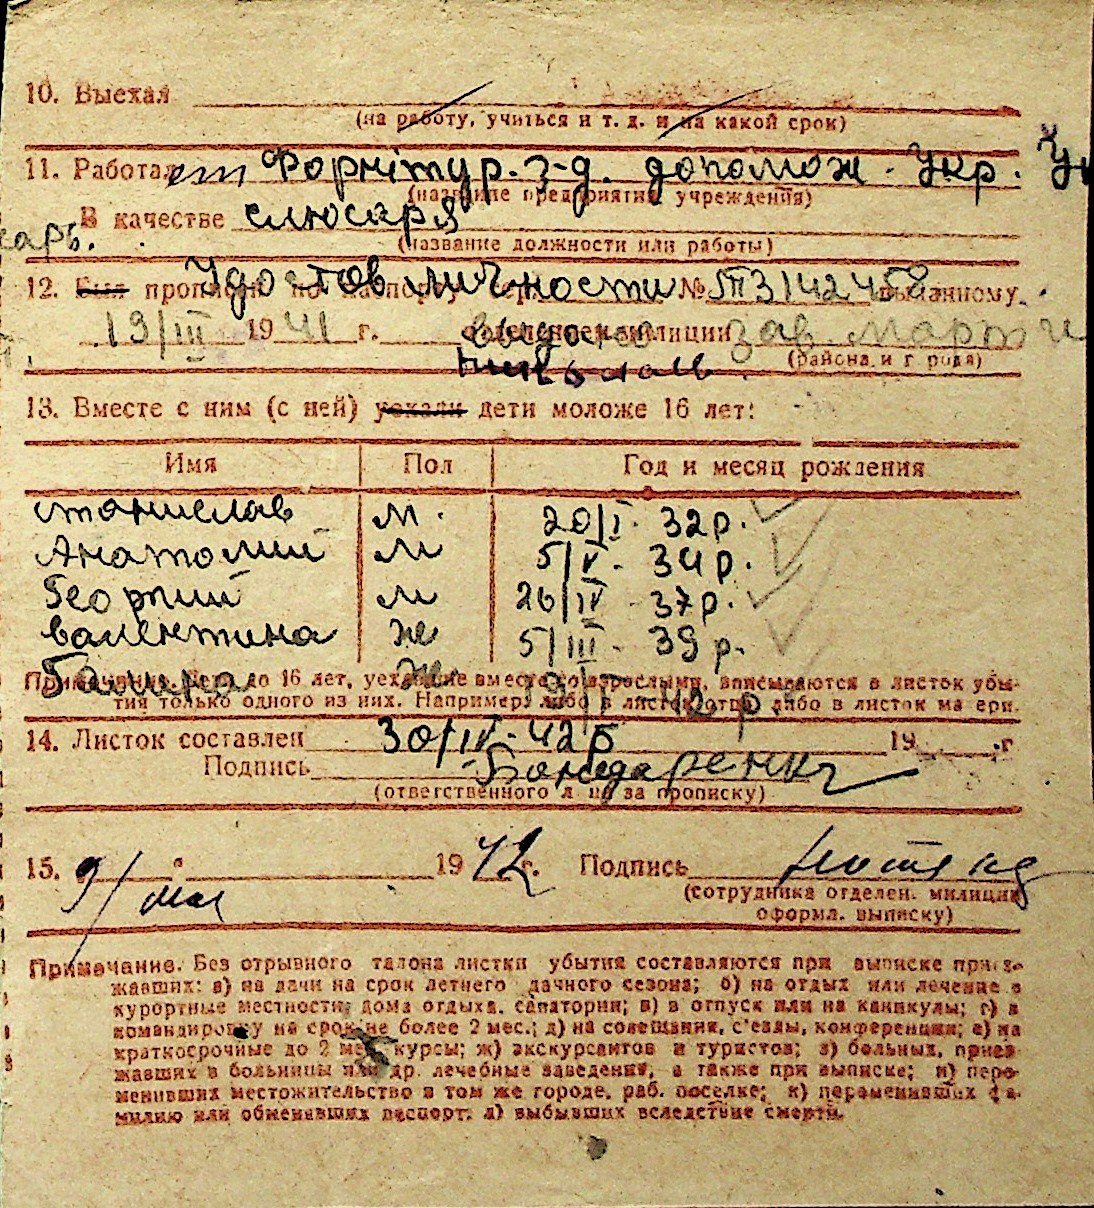 10. Выехал
(на работу, учиться и т. д. и на какой срок)
11. Работал Форнітур. з-д. допомож. Укр.
(название предприятия, учреждения)
В качестве слюсаря
карь.
(название должности или работы)
Удостов личности
12. Был прописан по паспорту № 3142458 выданному
19/III 1941 г. отделением милиции зав.
(района и города)
13. Вместе с ним (с ней) уехали дети моложе 16 лет:
Имя Пол Год и месяц рождения
Станислав м. 20/I. 32 р.
Анатолий м 5/V. 34 р.
Георгий м 26/IV 37 р.
Валентина ж 5/III. 39 р.
Галина ж. 19/I 42 р.
Примечание. Дети до 16 лет, уехавшие вместе со взрослыми, вписываются в листок убы-
тия только одного из них. Например, либо в листок отца, либо в листок матери.
14. Листок составлен 30/IV-42 19 г.
Подпись Бондаренко
(ответственного лица за прописку)
15. 9/ мая 1942 г. Подпись
(сотрудника отделен. милиции
оформл. выписку)
Примечание. Без отрывного талона листки убытия составляются при выписке приез-
жавших: а) на дачи на срок летнего дачного сезона; б) на отдых или лечение в
курортные местности, дома отдыха, санатории; в) в отпуск или на каникулы; г) в
командировку на срок не более 2 мес.; д) на совещания, с'езды, конференции; е) на
краткосрочные до 2 мес. курсы; ж) экскурсантов и туристов; з) больных, приез-
жавших в больницы или др. лечебные заведения, а также при выписке; и) пере-
менивших местожительство в том же городе, раб. поселке; к) переменивших фа-
милию или обменявших паспорт; л) выбывших вследствие смерти.